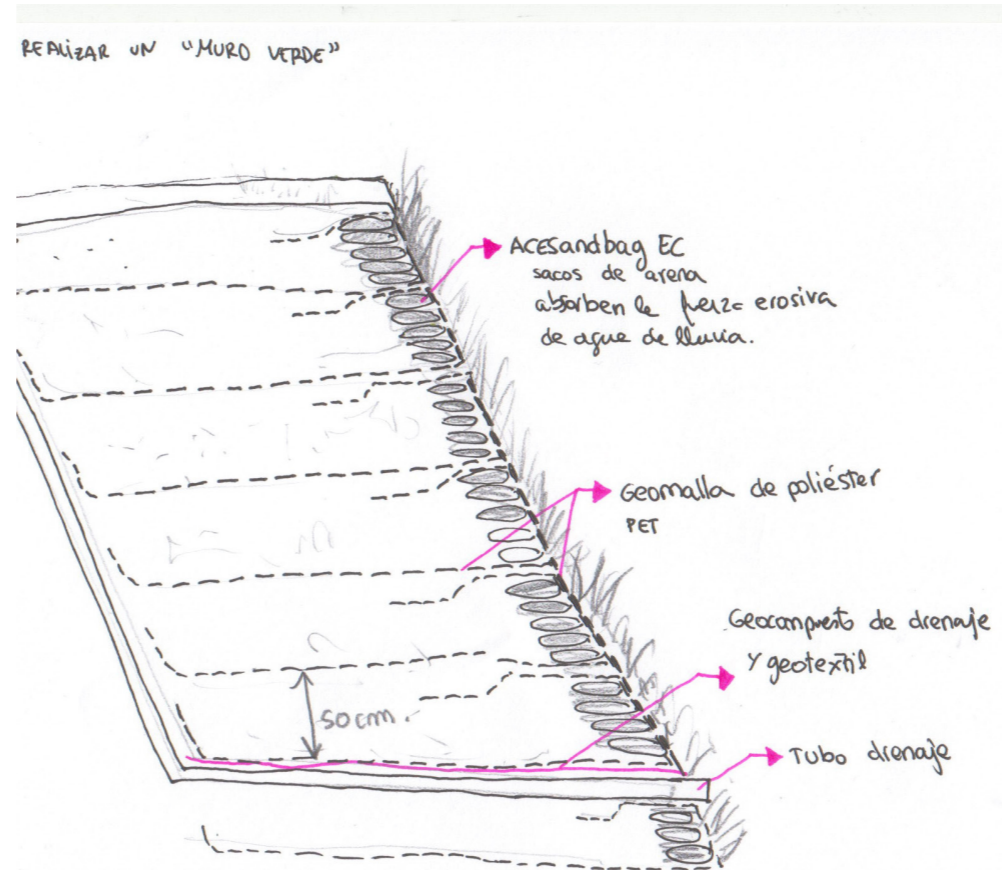 REALIZAR UN "MURO VERDE"
ACESandbag EC
sacos de arena
absorben la fuerza erosiva
de agua de lluvia.
Geomalla de poliéster
PET
Geocompuesto de drenaje
Y geotextil
50cm.
TUBO drenaje